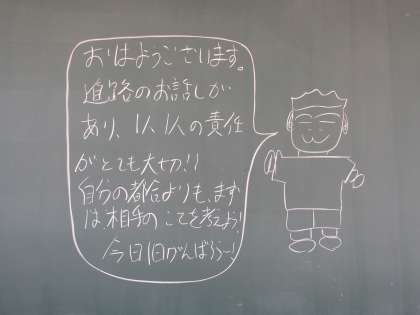 おはようございます。
進路のお話しが
あり、1人1人の責任
がとても大切!!
自分の都合よりも、まず
は相手のことを考えよう!
今日1日がんばろう〜!